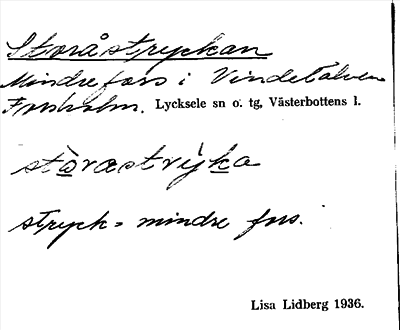 Storåstryckan
Mindre fors i Vindelälven
Lycksele sn o. tg, Västerbottens l.
stryck = mindre fors.
Lisa Lidberg 1936.